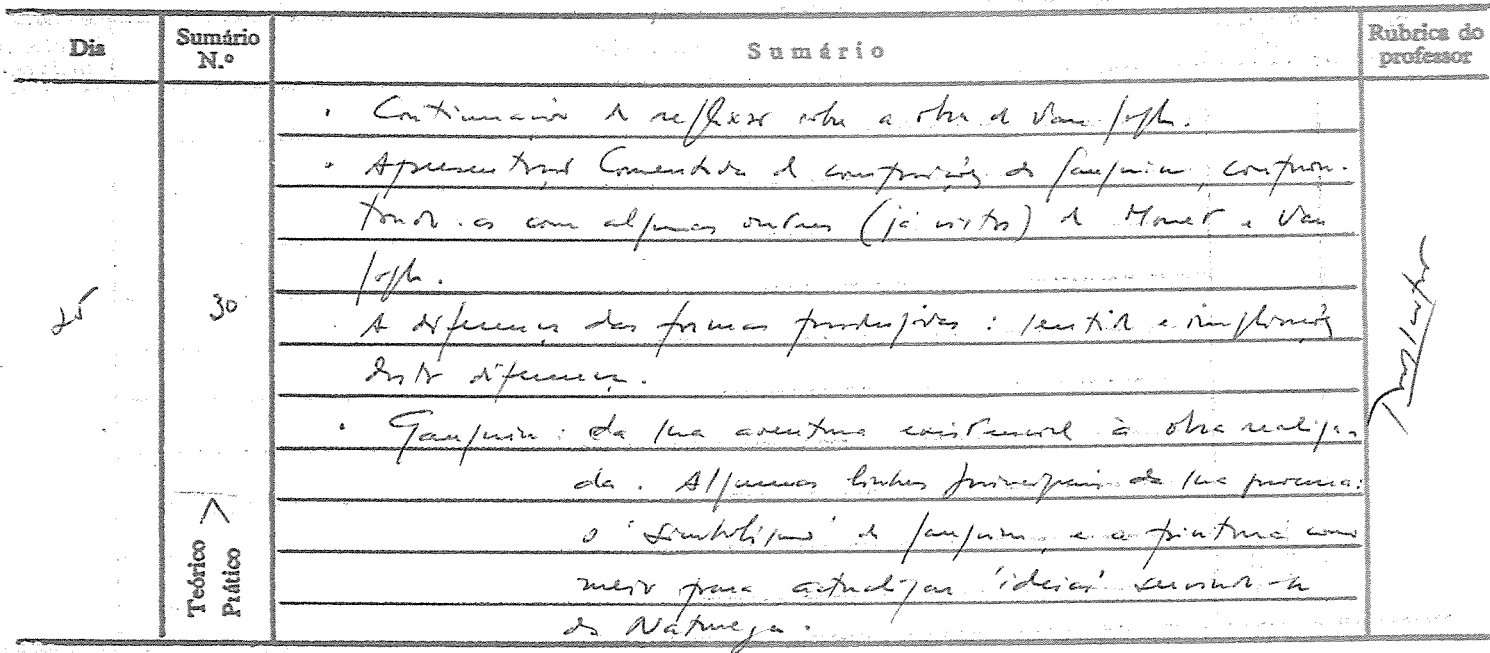 Dia
Sumário N.º
Sumário
Rubrica do professor
25
30
Teórico > Prático
• Continuação da reflexão sobre a obra de Van Gogh.
• Apresentação Comentada de composições de Gauguin, confron-
tando-as com algumas outras (já vistas) de Monet e Van
Gogh.
A diferença das formas produzidas: sentido e implicações
desta diferença.
• Gauguin: da sua aventura existencial à obra realiza-
da. Algumas linhas principais da sua procura:
o 'simbolismo' de Gauguin, e a pintura como
meio para actualizar 'ideias' servindo-se
da Natureza.